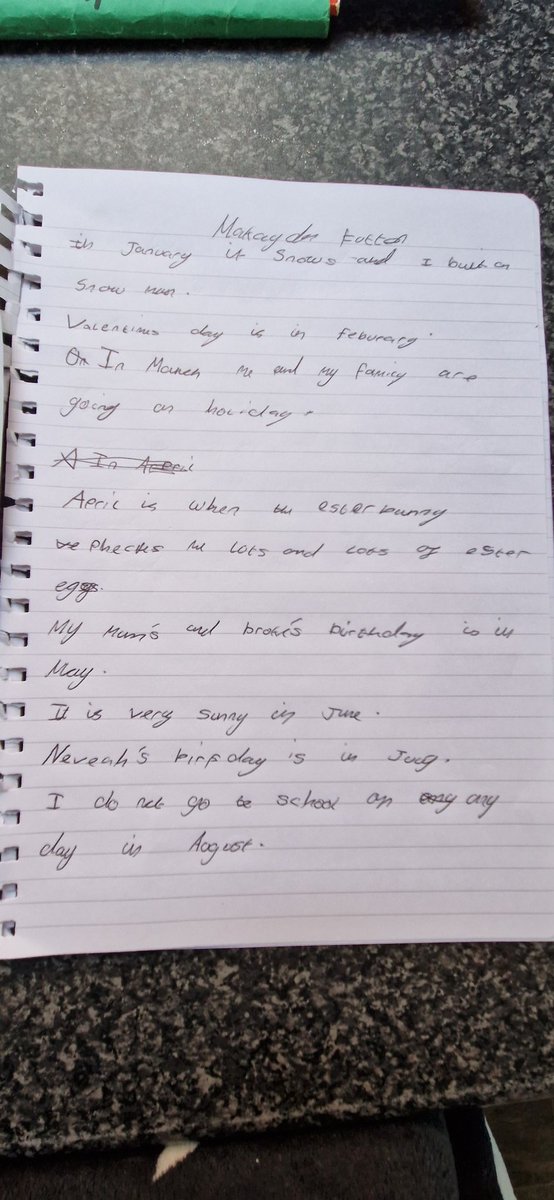 In January it Snows and I built a
Snow man.
Valentins day is in feburary.
In March me and my family are
going on holiday.
A In April
April is when the ester bunny
me lots and lots of ester
eggs.
My Mum's and birthday is in
May.
It is very sunny in June.
Neveah's birfday is in July.
I do not go to school on any any
day in August.